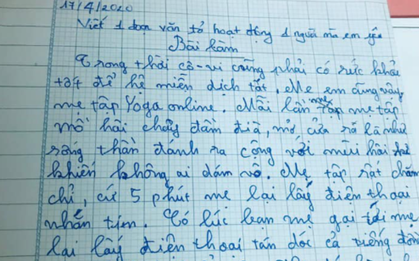 17/4/2020
Viết 1 đoạn văn tả hoạt động 1 người mà em yêu
Bài làm
Trong thời cô-vi cũng phải có sức khỏe
tốt để hệ miễn dịch tốt. Mẹ em cũng vậy
mẹ tập Yoga online. Mỗi lần mẹ tập mẹ tập
mồ hôi chảy đầm đìa, mở cửa ra là như
sóng thần đánh ra cộng với mùi hôi
khiến không ai dám vô. Mẹ tập rất chăm
chỉ, cứ 5 phút mẹ lại lấy điện thoại
nhắn tin. Có lúc bạn mẹ gọi tới mẹ
lại lấy điện thoại tán dóc cả tiếng đồng